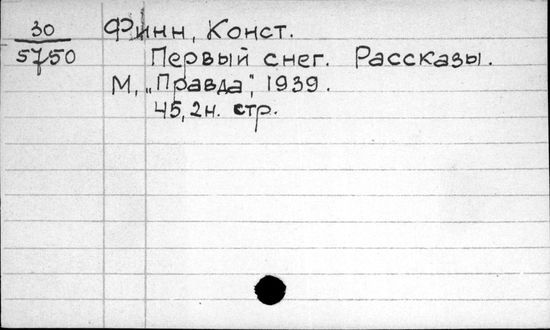 30 Финн, Конст.
5750 Первый снег. Рассказы.
М, „Правда", 1939.
45, 2н. стр.